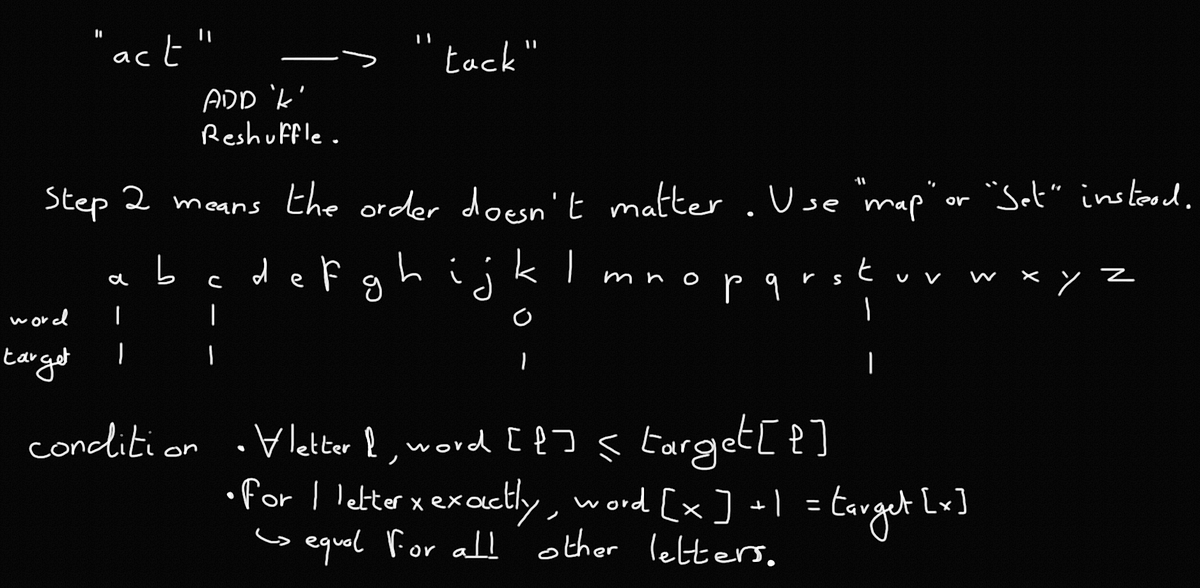 "act" → "tack"
ADD 'k'
Reshuffle.
Step 2 means the order doesn't matter. Use "map" or "Set" instead.
a b c d e f g h i j k l m n o p q r s t u v w x y z
word 1 1 0 1
target 1 1 1 1
condition • ∀ letter l, word [l] ≤ target[l]
• For 1 letter x exactly, word [x] + 1 = target [x]
↪ equal for all other letters.